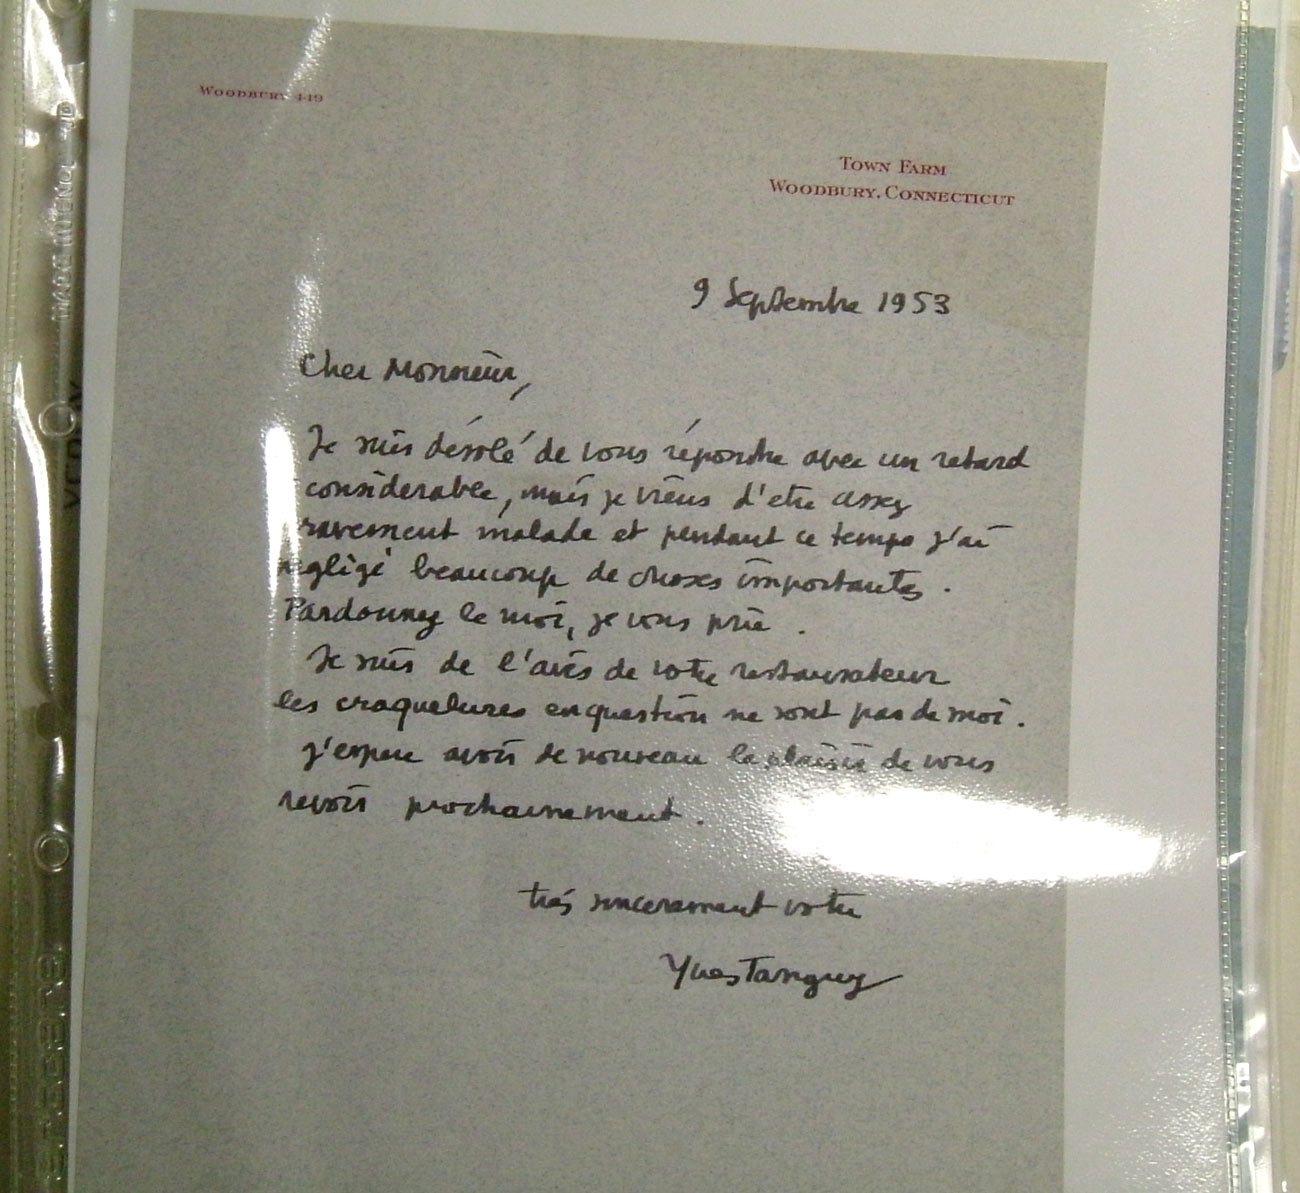 WOODBURY 449
TOWN FARM
WOODBURY, CONNECTICUT
9 Septembre 1953
Cher Monsieur,
Je suis désolé de vous répondre avec un retard
considerable, mais je viens d'etre assez
gravement malade et pendant ce temps j'ai
négligé beaucoup de choses importantes.
Pardonnez le moi, je vous prie.
Je suis de l'avis de votre restaurateur
les craquelures en question ne sont pas de moi.
J'espere avoir de nouveau le plaisir de vous
revoir prochainement.
trés sincerement votre
Yves Tanguy